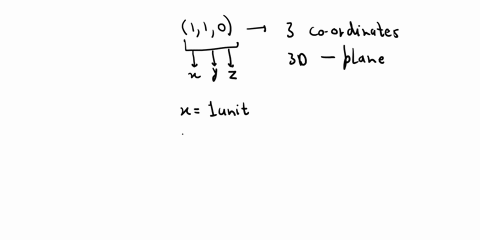 (1,1,0) → 3 co-ordinates
x y z 3D - plane
x = 1 unit